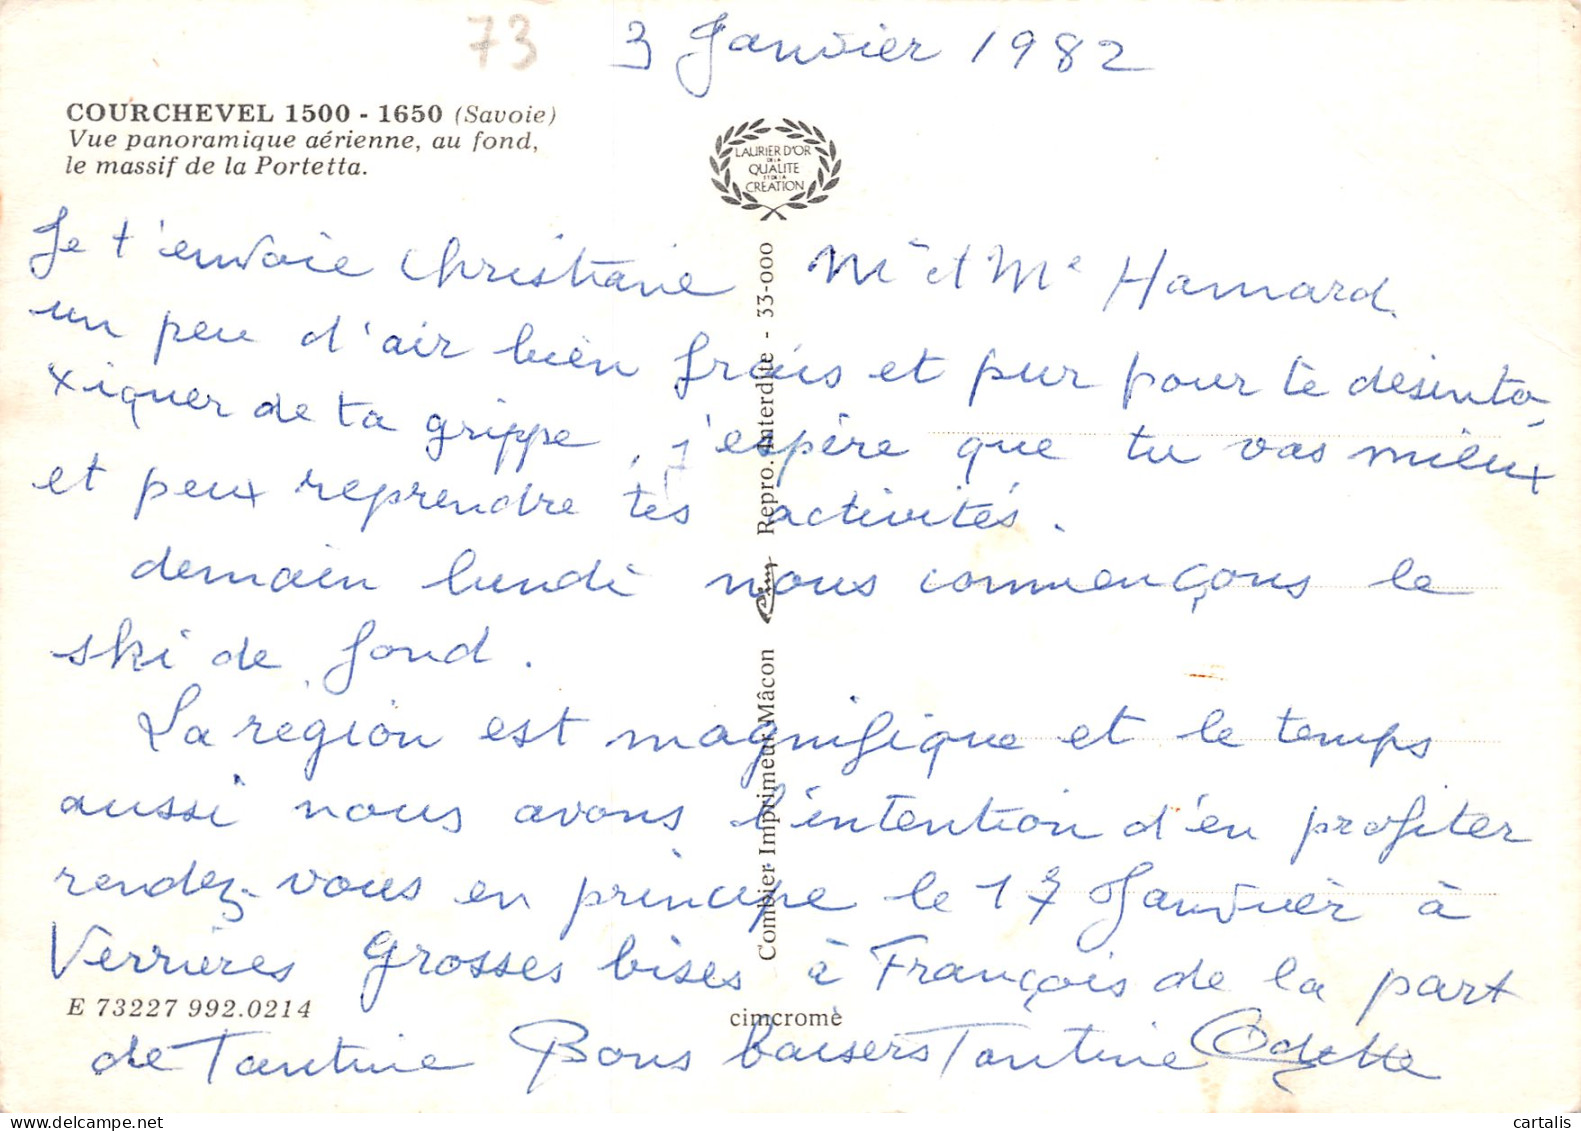 73
3 Janvier 1982
COURCHEVEL 1500 - 1650 (Savoie)
Vue panoramique aérienne, au fond,
le massif de la Portetta.
LAURIER D'OR
DE LA
QUALITE
ET DE LA
CREATION
Je t'envoie Christiane Mr et Me Hamard.
un peu d'air bien frais et pur pour te desinto
xiquer de ta grippe, j'espère que tu vas mieux
et peux reprendre tes activités.
demain lundi nous commençons le
ski de fond.
La région est magnifique et le temps
aussi nous avons l'intention d'en profiter
rendez-vous en principe le 17 Janvier à
Verrières Grosses bises à François de la part
de Tantine Bons baisers Tantine Odette
Combier Imprimeur Mâcon Cim Repro. Interdite - 33-000
E 73227 992.0214
cimcrome
cartalis